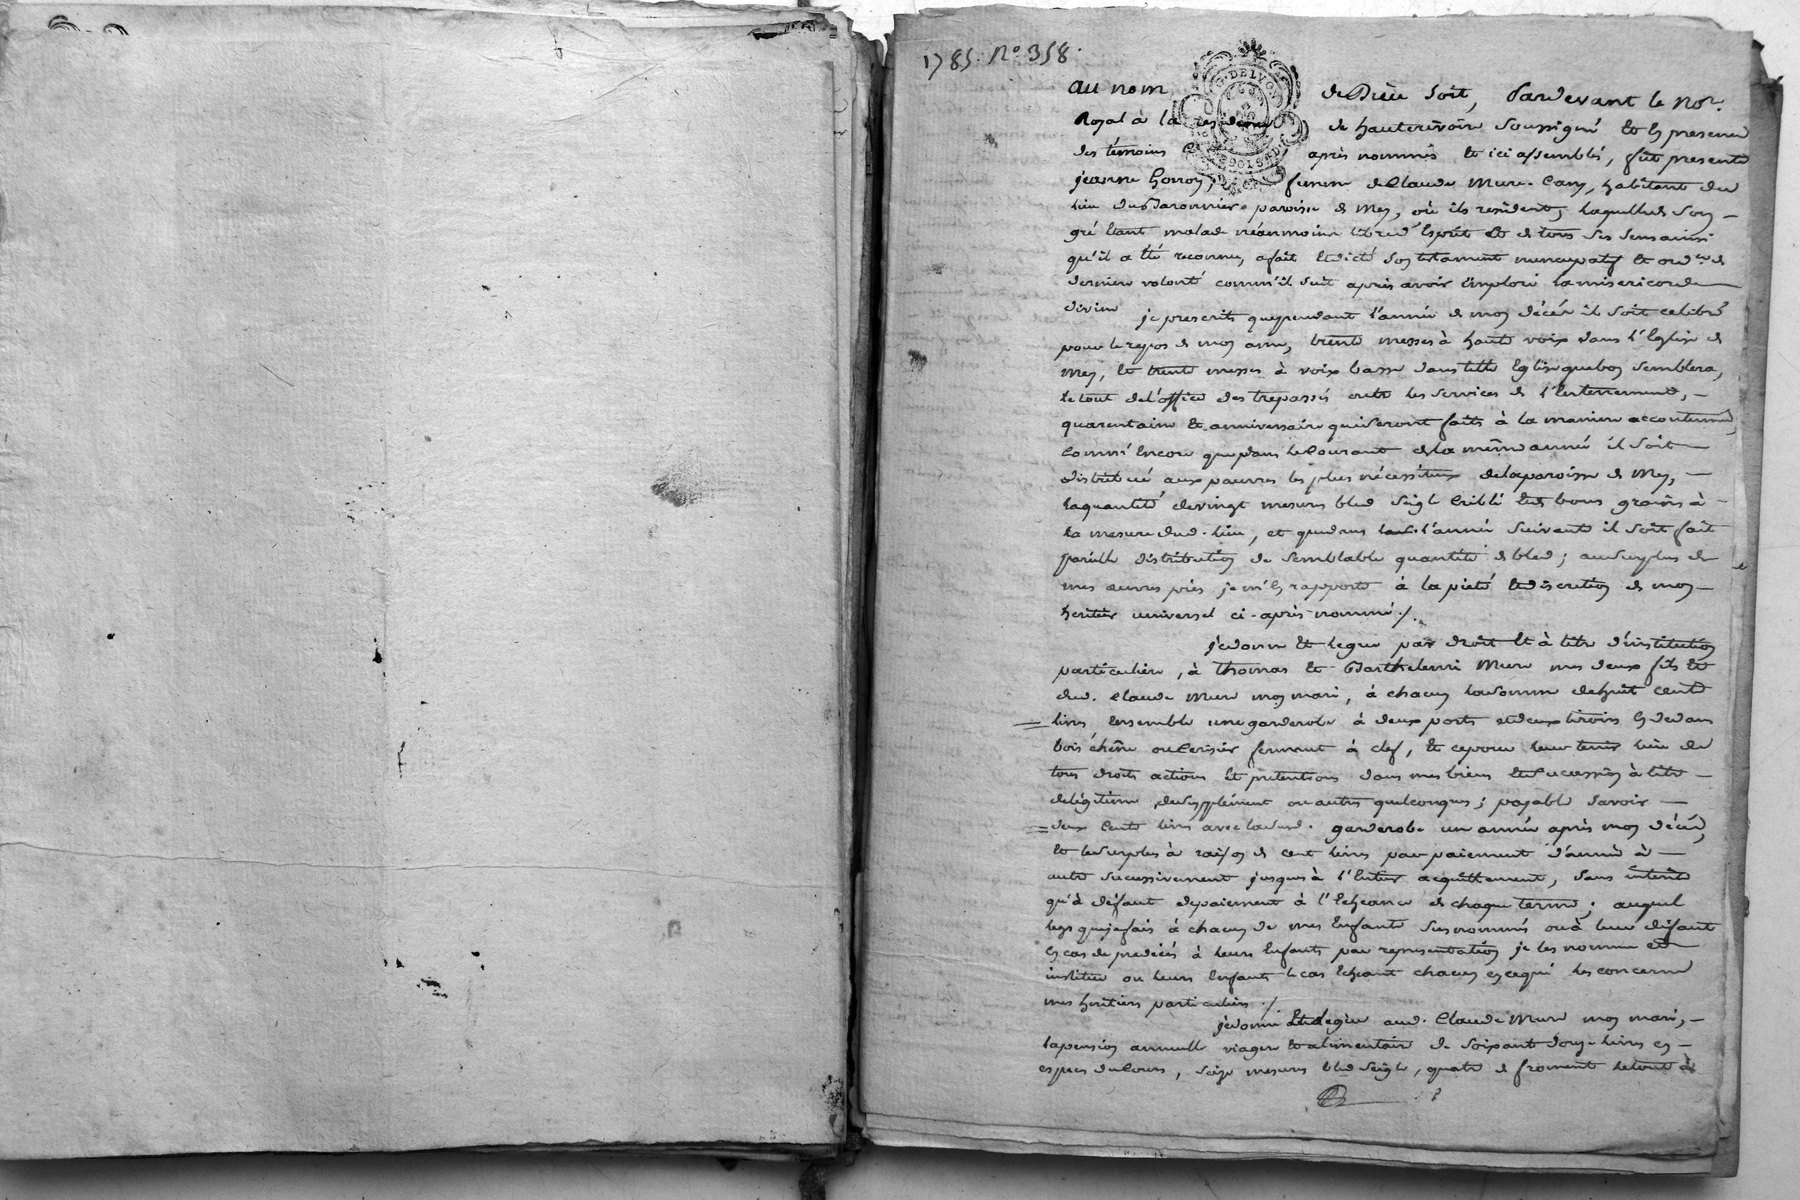 1785. N.º 358.
G. DE LYON
au nom de Dieu soit, Pardevant le nor.
Royal à la residence de hauterivoire soussigné et en presence
des témoins après nommés et ici assemblés, fut presente
jeanne femme de Claude Mure habitant du
lieu paroisse de Mey, où ils resident, laquelle de son
gré étant malade néanmoins libre d'esprit et de tous ses sens ainsi
qu'il a été reconnu, a fait et dicté son testament nuncupatif et ord.re de
derniere volonté comm'il suit après avoir imploré la misericorde
divine je prescrits que pendant l'année de mon décés il soit celebré
pour le repos de mon ame, trente messes à haute voix dans l'Eglise de
Mey, et trente messes à voix basse dans telle Eglise que bon semblera,
le tout de l'office des trepassés outre les services de l'enterrement,
quarentaine et anniversaire qui seront faits à la maniere accoutumée,
comm'encore que dans le courant de la même année il soit
distribué aux pauvres les plus nécessiteux de la paroisse de Mey,
la quantité de vingt mesures bled seigle criblé et de bons grains à
la mesure dud. lieu, et que dans l'année suivante il soit fait
pareille distribution de semblable quantité de bled; au surplus de
mes œuvres pies je m'en rapporte à la pieté et discretion de mon
heritier universel ci-après nommé./.
je donne et legue par droit et à titre d'institution
particuliere, à Thomas et Barthelemi Mure mes deux fils et
dud. Claude Mure mon mari, à chacun la somme de huit cents
livres, ensemble une garderobe à deux portes et deux tiroirs en dedans
bois chêne ou cerisier fermant à clef, et ce pour leur tenir lieu de
tous droits actions et pretentions dans mes biens et succession à titre
de légitime de supplément ou autres quelconques; payable savoir
deux cents livres avec lad. garderobe un année après mon décés,
et le surplus à raison de cent livres par paiement d'année à
autre successivement jusques à l'entier acquittement, sans intérêt
qu'à défaut de paiement à l'echeance de chaque terme; auquel
legs que je fais à chacun de mes enfants susnommés ou à leur défaut
en cas de predecés à leurs enfants par representation je les nomme et
institue ou leurs enfants le cas echeant chacun en ce qui les concerne
mes heritiers particuliers ./
je donne et legue aud. Claude Mure mon mari,
la pension annuelle viagere et alimentaire de soixante douze livres en
especes de cours, seize mesures bled seigle, quatre de froment le tout à